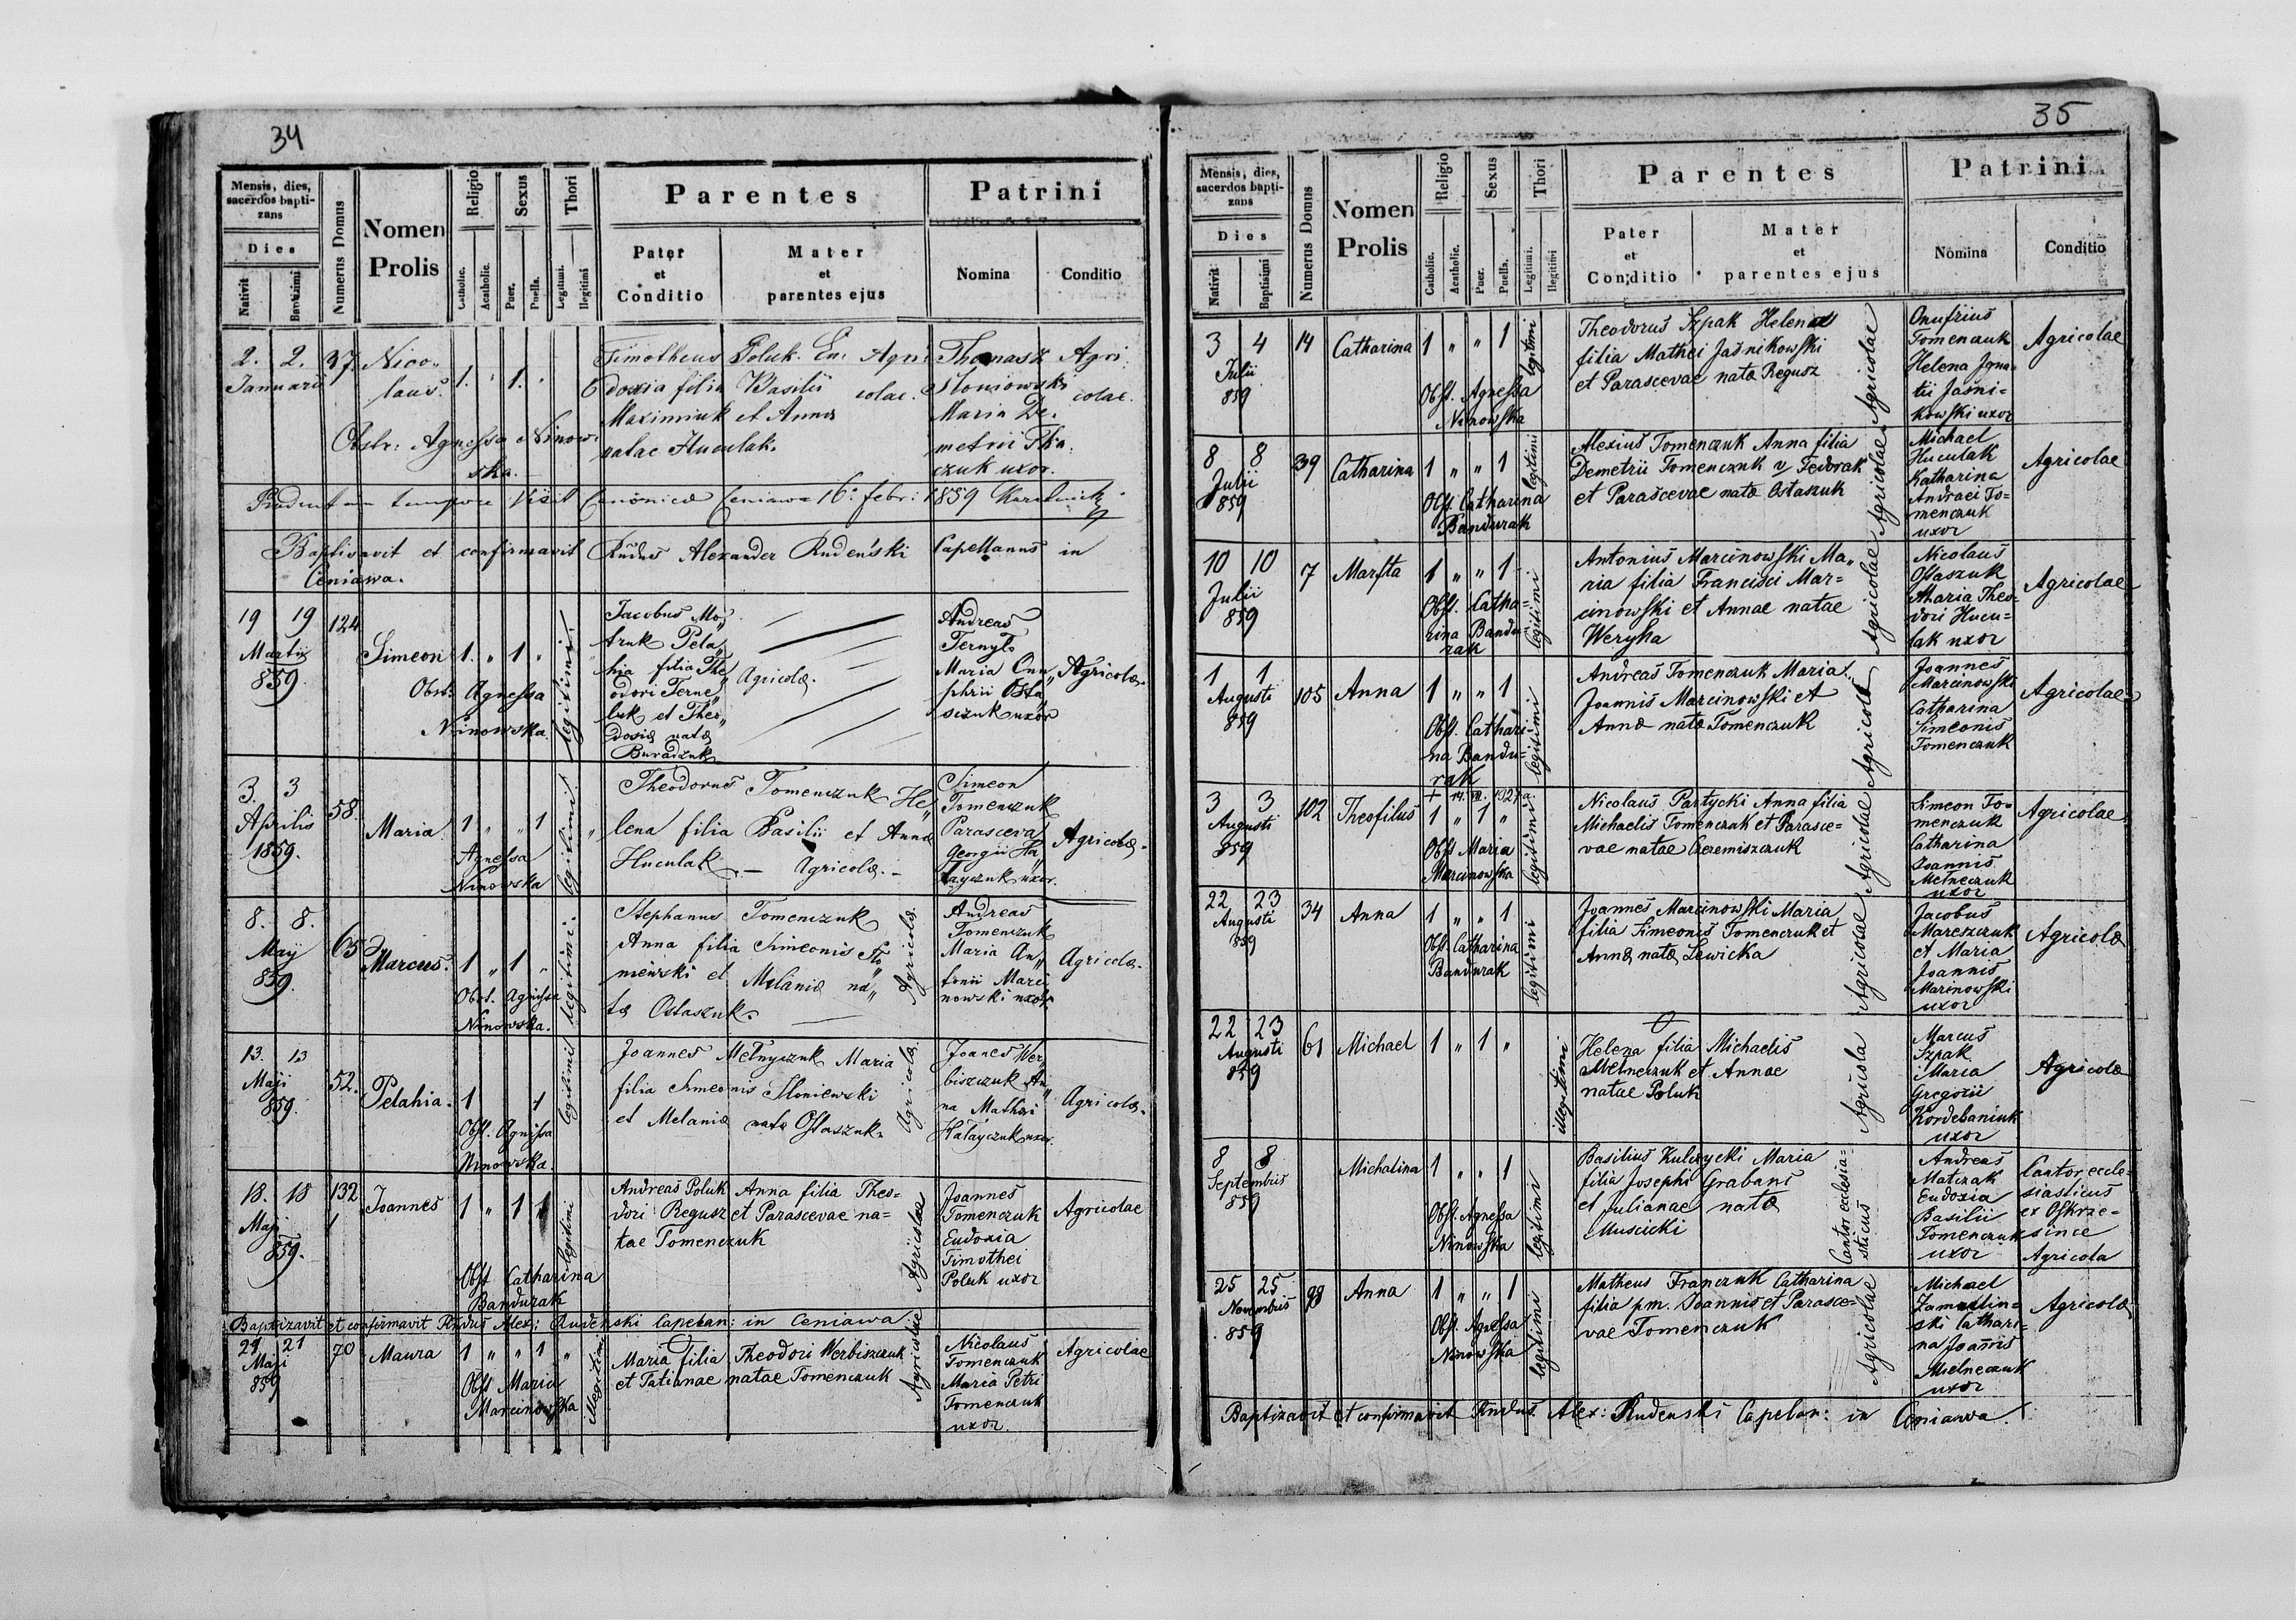 34
Mensis, dies, sacerdos baptizans
Dies
Nativit
Baptisimi
Numerus Domus
Nomen Prolis
Religio
Catholic.
Acatholic.
Sexus
Puer.
Puella.
Thori
Legitimi.
Ilegitimi
Parentes
Pater et Conditio
Mater et parentes ejus
Patrini
Nomina
Conditio
2. 2. 37. Nico„
Januarii
laus. 1. " 1. "
Obstr: Agnessa Ninow„
ska.
Timotheus Poluk. Eu„ Agri
doxia filia Basilii colae.
Maximiuk et Anna
natae Huculak.
Thomasz Agri
Słoniowski colae.
Maria De„
metrii Tka„
czuk uxor.
Canonica Ceniawa 16. febr: 1859
Baptisavit et confirmavit Rndus Alexander Rudeński Capellanus in
Ceniawa.
19 19 124
Martii
859.
Simeon 1. " 1 "
Obst: Agnessa
Ninowska.
legitimi
Jacobus Mo„
truk Pela„
hia filia The„
odori Terne„
luk et Theo„
dosia nata
Buradzuk
Agricola.
Andreas
Ternyl
Maria Onu„
phrii Osta„
szuk uxor
Agricola.
3. 3
Aprilis
1859.
58.
Maria 1 " " 1 "
Agnessa
Ninowska
legitimi
Theodorus Tomenczuk He„
lena filia Basilii et Anna
Huculak. — Agricola. —
Simeon
Tomenczuk
Parasceva
Georgii Ha„
łayczuk uxor.
Agricola.
8. 8.
Maji
859.
65
Marcus. 1 " 1 "
Obst. Agnessa
Ninowska.
legitimi.
Stephanus Tomenczuk
Anna filia Simeonis Sło„
niewski et Melania na„
ta Ostaszuk.
Agricola.
Andreas
Tomenczuk
Maria An„
tonii Marci
nowski uxor
Agricola.
13. 13
Maji
859.
52.
Pelahia. 1 1
Obst. Agnissa
Ninowska.
legitimi
Joannes Mełnyczuk Maria
filia Simeonis Słoniewski
et Melania nata Ostaszuk.
Agricola.
Joanes Wer„
biszczuk An„
na Mathei
Hałayczuk uxor.
Agricola.
18. 18 132
Maji 1
859.
Joannes 1 " 1 1
Obst Catharina
Bandurak
legitimi
Andreas Poluk Anna filia Theo-
dori Regusz et Parascevae na=
tae Tomenczuk
Agricolae
Joannes
Tomenczuk
Eudoxia
Timothei
Poluk uxor
Agricolae
Baptizavit et confirmavit Rndus Alex: Rudenski Capelan: in Ceniawa
21 21 70
Maji
859
Maura 1 " " 1 "
Obst Maria
Marcinowska
illegitimi
Maria filia Theodori Werbiszczuk
et Tatianae natae Tomenczuk
Agricolae
Nicolaus
Tomenczuk
Maria Petri
Tomenczuk
uxor.
Agricolae
35
Mensis, dies, sacerdos baptizans
Dies
Nativit
Baptisimi
Numerus Domus
Nomen Prolis
Religio
Catholic.
Acatholic.
Sexus
Puer.
Puella.
Thori
Legitimi.
Ilegitimi
Parentes
Pater et Conditio
Mater et parentes ejus
Patrini
Nomina
Conditio
3 4 14
Julii
859
Catharina 1 " " 1
Obst. Agnessa
Ninowska
legitimi
Theodorus Szpak Helena
filia Mathei Jaśnikowski
et Parascevae nata Regusz
Agricolae
Onufrius
Tomenczuk
Helena Igna=
tii Jaśni=
kowski uxor
Agricolae
8 8 39
Julii
859
Catharina 1 " " 1
Obst. Catharina
Bandurak
legitimi
Alexius Tomenczuk Anna filia
Demetrii Tomenczuk v Fedorak
et Parascevae nata Ostaszuk
Agricolae
Michael
Huculak
Katharina
Andraei To=
menczuk
uxor
Agricolae
10 10 7
Julii
859
Marfta 1 " " 1
Obst. Catha=
rina Bandu=
rak
legitimi
Antonius Marcinowski Ma„
ria filia Francisci Mar=
cinowski et Annae natae
Weryha
Agricolae
Nicolaus
Ostaszuk
Maria Theo=
dori Hucu=
lak uxor
Agricolae
1 1 105
Augusti
859
Anna 1 " " 1
Obst. Cathari
na Bandu=
rak
legitimi
Andreas Tomenczuk Maria
Joannis Marcinowski et
Anna nata Tomenczuk
Agricola
Joannes
Marcinowski
Catharina
Simeonis
Tomenczuk
Agricolae
3 3 102
Augusti
859
Theofilus 1 " 1 "
Obst Maria
Marcinowska
legitimi
Nicolaus Partycki Anna filia
Michaelis Tomenczuk et Parasce=
vae natae Czeremiszczuk
Agricolae
Simeon To=
menczuk
Catharina
Joannis
Mełneczuk
uxor
Agricolae
22 23 34
Augusti
859
Anna 1 " " 1
Obst. Catharina
Bandurak
legitimi
Joannes Marcinowski Maria
filia Simeonis Tomenczuk et
Anna nata Lewicka
Agricolae
Jacobus
Mareszczuk
et Maria
Joannis
Marcinowski
uxor
Agricola
22 23 61
Augusti
859
Michael 1 " 1 "
illegitimi
Helena filia Michaelis
Mełneczuk et Annae
natae Poluk
Marcus
Szpak
Maria
Gregorii
Kordebaniuk
uxor
Agricola
8 8
Septembris
859
Michalina 1 " " 1
Obst. Agnessa
Ninowska
legitimi
Basilius Kulczycki Maria
filia Josephi Grabans
et Julianae nata
Muscicki
Cantor ecclesia=
sticus
Andreas
Matczak
Eudoxia
Basilii
Tomenczuk
uxor
Cantor eccle=
siasticus
ex Oskrze=
since
Agricola
25 25 98
Novembris
859
Anna 1 " " 1
Obst. Agnessa
Ninowska
legitimi
Matheus Franczuk Catharina
filia pm. Joannis et Parasce=
vae Tomenczuk
Agricolae
Michael
ski Cathari=
na Joannis
Mielneczuk
uxor
Agricola
Baptizavit et confirmavit Rndus. Alex: Rudenski Capelan: in Ceniawa.